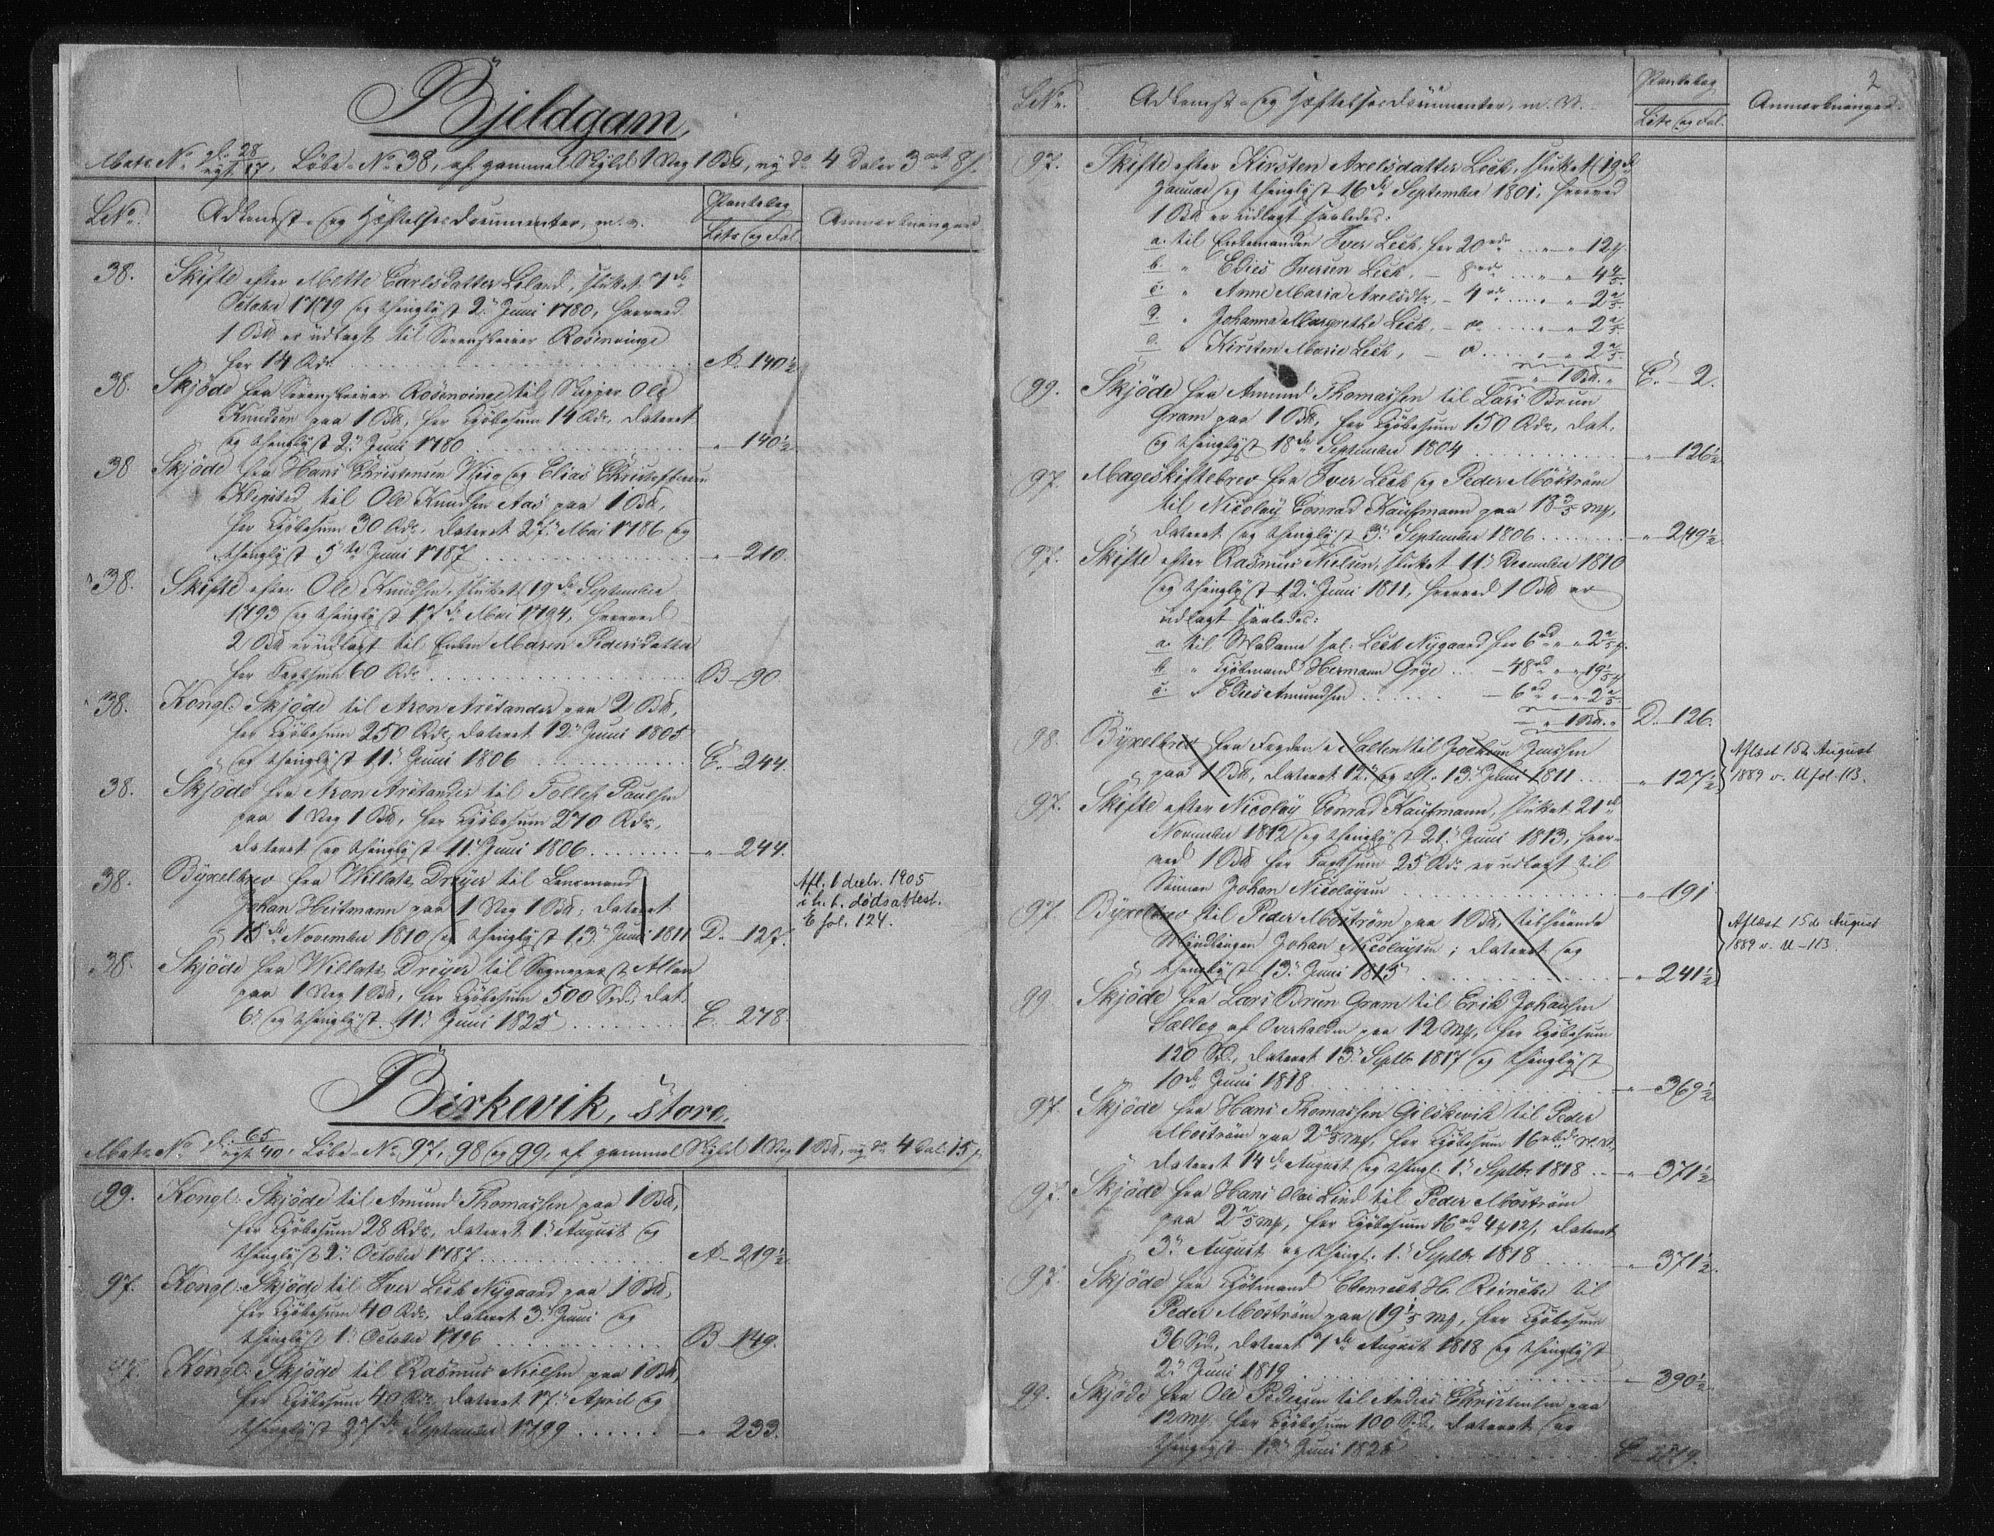 Bjeldgam,
Matr. No. gl. 28 / nyt 17, Löbe-No. 38, af gammel Skyld 1 Vog 1 Bd, ny do 4 Daler 3 ort 8 s.
L.No. Adkomst- og Hæftelsesdocumenter, m. v. Pantebog Litr. og Fol. Anmærkninger
38. Skifte efter Mette Carlsdatter Leland, sluttet 7de
October 1779 og thinglyst 2. Juni 1780, hvorved
1 Bd er udlagt til Sorenskriver Rosenvinge
for 14 Rdr. A. 140½
38. Skjöde fra Sorenskriver Rosenvinge til Skipper Ole
Knudsen paa 1 Bd, for Kjöbesum 14 Rdr, dateret
og thinglyst 2. Juni 1780 " 140½
38 Skjöde fra Hans Christensen og Elias Christophersen
til Ole Knudsen Aas paa 1 Bd,
for Kjöbesum 30 Rdr. dateret 27. Mai 1786 og
thinglyst 5te Juni 1787 " 210.
38. Skifte efter Ole Knudsen, sluttet 19de September
1793 og thinglyst 17de Mai 1794, hvorved
2 Bd er udlagt til Enken Maren Pedersdatter
for Taxtsum 60 Rdr. B. 90
38. Kongl. Skjöde til Aron Aretander paa 2 Bd,
for Kjöbesum 250 Rdr, dateret 12. Juni 1805
og thinglyst 11. Juni 1806 C. 244.
38. Skjöde fra Aron Aretander til Tollef Paulsen
paa 1 Vog 1 Bd, for Kjöbesum 270 Rdr,
dateret og thinglyst 11. Juni 1806. " 244.
38. Byxelbrev fra Willats Dreyer til Lensmand
Johan Heitmann paa 1 Vog 1 Bd, dateret
15de November 1810 og thinglyst 13. Juni 1811 D. 127.
Afl. 1 decbr. 1905
i h. t. dødsattest.
E fol. 124.
38. Skjöde fra Willats Dreyer til Sogneprest
paa 1 Vog 1 Bd, for Kjöbesum 500 Spd, dat.
6. og thinglyst 11. Juni 1825 E. 278.
Birkevik, store.
Matr. No. gl. 65 / nyt 40, Löbe-No. 97, 98 og 99, af gammel Skyld 1 Vog 1 Bd, ny do 4 Dal. 15 s.
99. Kongl. Skjöde til Amund Thomassen paa 1 Bd,
for Kjöbesum 28 Rdr, dateret 1. August og
thinglyst 2. October 1787 A. 219½
97. Kongl. Skjöde til Iver Lech Nygaard paa 1 Bd,
for Kjöbesum 40 Rdr, dateret 3. Juni og
thinglyst 1. October 1796 B. 149.
97. Kongl. Skjöde til Rasmus Nielsen paa 1 Bd,
for Kjöbesum 40 Rdr, dateret 17. April og
thinglyst 27de September 1799 " 233.
2
L.No. Adkomst- og Hæftelsesdocumenter, m. v. Pantebog Litr. og Fol. Anmærkninger
97. Skifte efter Kirsten Axelsdatter Lech, sluttet 19de
Januar og thinglyst 16de September 1801, hvorved
1 Bd er udlagt saaledes:
a. til Enkemanden Iver Lech, for 20 rdr " " 12
b. " Elies Iversen Lech, — 8 rdr " " 4 4/5
c. " Anne Maria Axelsdtr, — 4 rdr " " 2 2/5
d. " Johanna Margrethe Lech, — do " " 2 2/5
e. " Kirsten Marie Lech, — do " " 2 2/5
" 1 Bd. " C. 2.
99. Skjöde fra Amund Thomassen til Lars Brun
Gram paa 1 Bd, for Kjöbesum 150 Rdr, dat.
og thinglyst 18de September 1804 " 126½
97. Mageskiftebrev fra Iver Lech og Peder Moström
til Nicolay Conrad Kaufmann paa 13 3/5 mk,
dateret og thinglyst 3. September 1806 " 249½
97. Skifte efter Rasmus Nielsen, sluttet 11. December 1810
og thinglyst 12. Juni 1811, hvorved 1 Bd er
udlagt saaledes:
a. til Madame sal. Lech Nygaard for 6 rd " " 2 2/5
b. " Kjöbmand Hermann — 48 rd " " 19 1/5
c. " Elies Amundsen — 6 rd " " 2 2/5
" 1 Bd. " D. 126.
98. Byxelbrev fra Fogden i Salten til Jochum Jenssen
paa 1 Bd, dateret 12. og thl. 13. Juni 1811 " 127½
Aflæst 15de August
1889 v. U fol. 113.
97. Skifte efter Nicolay Conrad Kaufmann, sluttet 21de
November 1812 og thinglyst 21. Juni 1813, hvor-
ved 1 Bd for Taxtsum 25 Rdr er udlagt til
Sönnen Johan Nicolaysen " 191
97. Byxelbrev til Peder Moström paa 1 Bd, tilhörende
Myndlingen Johan Nicolaysen; dateret og
thinglyst 13. Juni 1815 " 241½
Aflæst 15de August
1889 v. U—113.
99. Skjöde fra Lars Brun Gram til Erik Johansen
Salleg af Overhalden paa 12 mk, for Kjöbesum
120 Spd, dateret 13. Septbr 1817 og thinglyst
10de Juni 1818 " 369½
97. Skjöde fra Hans Thomassen Gilskevik til Peder
Moström paa 2 2/5 mk, for Kjöbesum 16
dateret 14de August og thingl. 1. Septbr 1818 " 371½
97. Skjöde fra Hans Olai Lind til Peder Moström
paa 2 2/5 mk, for Kjöbesum 16 rd 4 12 s, dateret
3. August og thingl. 1. Septbr 1818 " 371½
97. Skjöde fra Kjöbmand H. Reinche til
Peder Moström paa 19 1/5 mk, for Kjöbesum
36 Spd, dateret 7de August 1818 og thinglyst
2. Juni 1819 " 390½
99. Skjöde fra Ole Pedersen til Andreas Christensen paa
12 mk for Kjöbesum 100 Spd, dateret og
thinglyst 13. Juni 1825 E. 279.